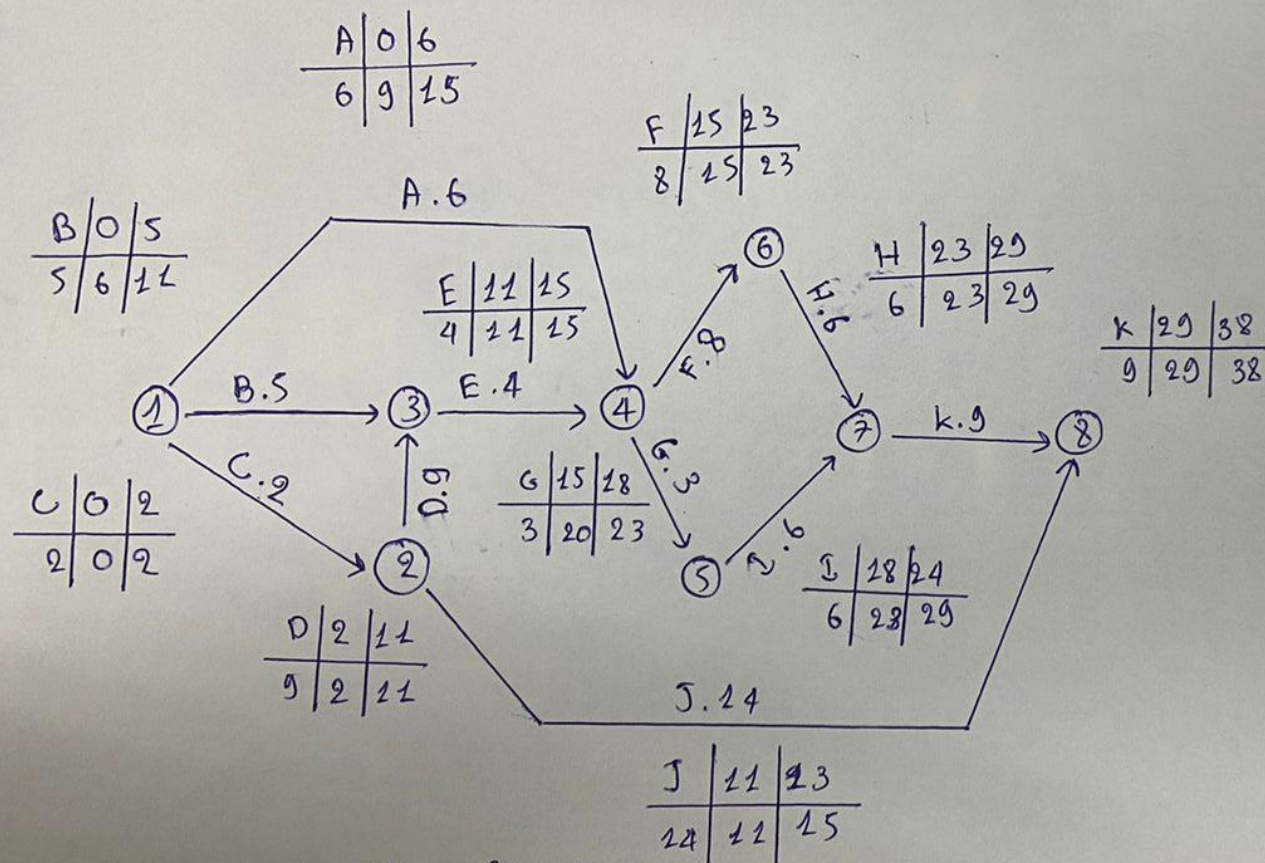 A 0 6
6 9 15
F 15 23
8 15 23
A.6
B 0 5
5 6 11
E 11 15
4 11 15
6
H 23 29
6 23 29
H.6
F.8
K 29 38
9 29 38
1
B.5
3
E.4
4
7
K.9
8
C.2
D.9
G.3
C 0 2
2 0 2
G 15 18
3 20 23
2
5
I.6
I 18 24
6 23 29
D 2 11
9 2 11
J.14
J 11 23
14 11 15